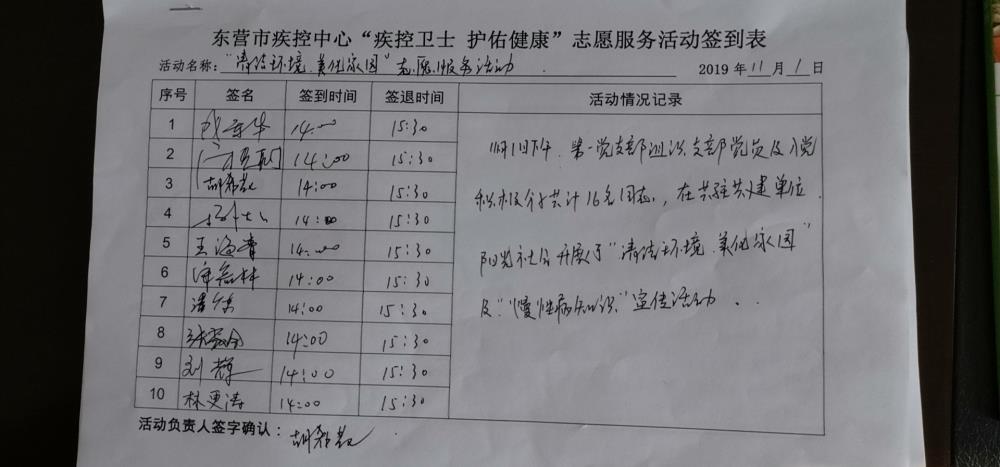 东营市疾控中心“疾控卫士 护佑健康”志愿服务活动签到表
活动名称：“清洁环境、美化家园”志愿服务活动 2019 年 11 月 1 日
序号 签名 签到时间 签退时间 活动情况记录
1 14:00 15:30
2 14:00 15:30
3 胡希敖 14:00 15:30
4 14:00 15:30
5 王海青 14:00 15:30
6 14:00 15:30
7 14:00 15:30
8 14:00 15:30
9 刘 14:00 15:30
10 林更涛 14:00 15:30
11月1日下午，第一党支部组织支部党员及入党
积极分子共计16名同志，在共驻共建单位
阳光社区开展了“清洁环境、美化家园”
及“慢性病知识”宣传活动．
活动负责人签字确认：